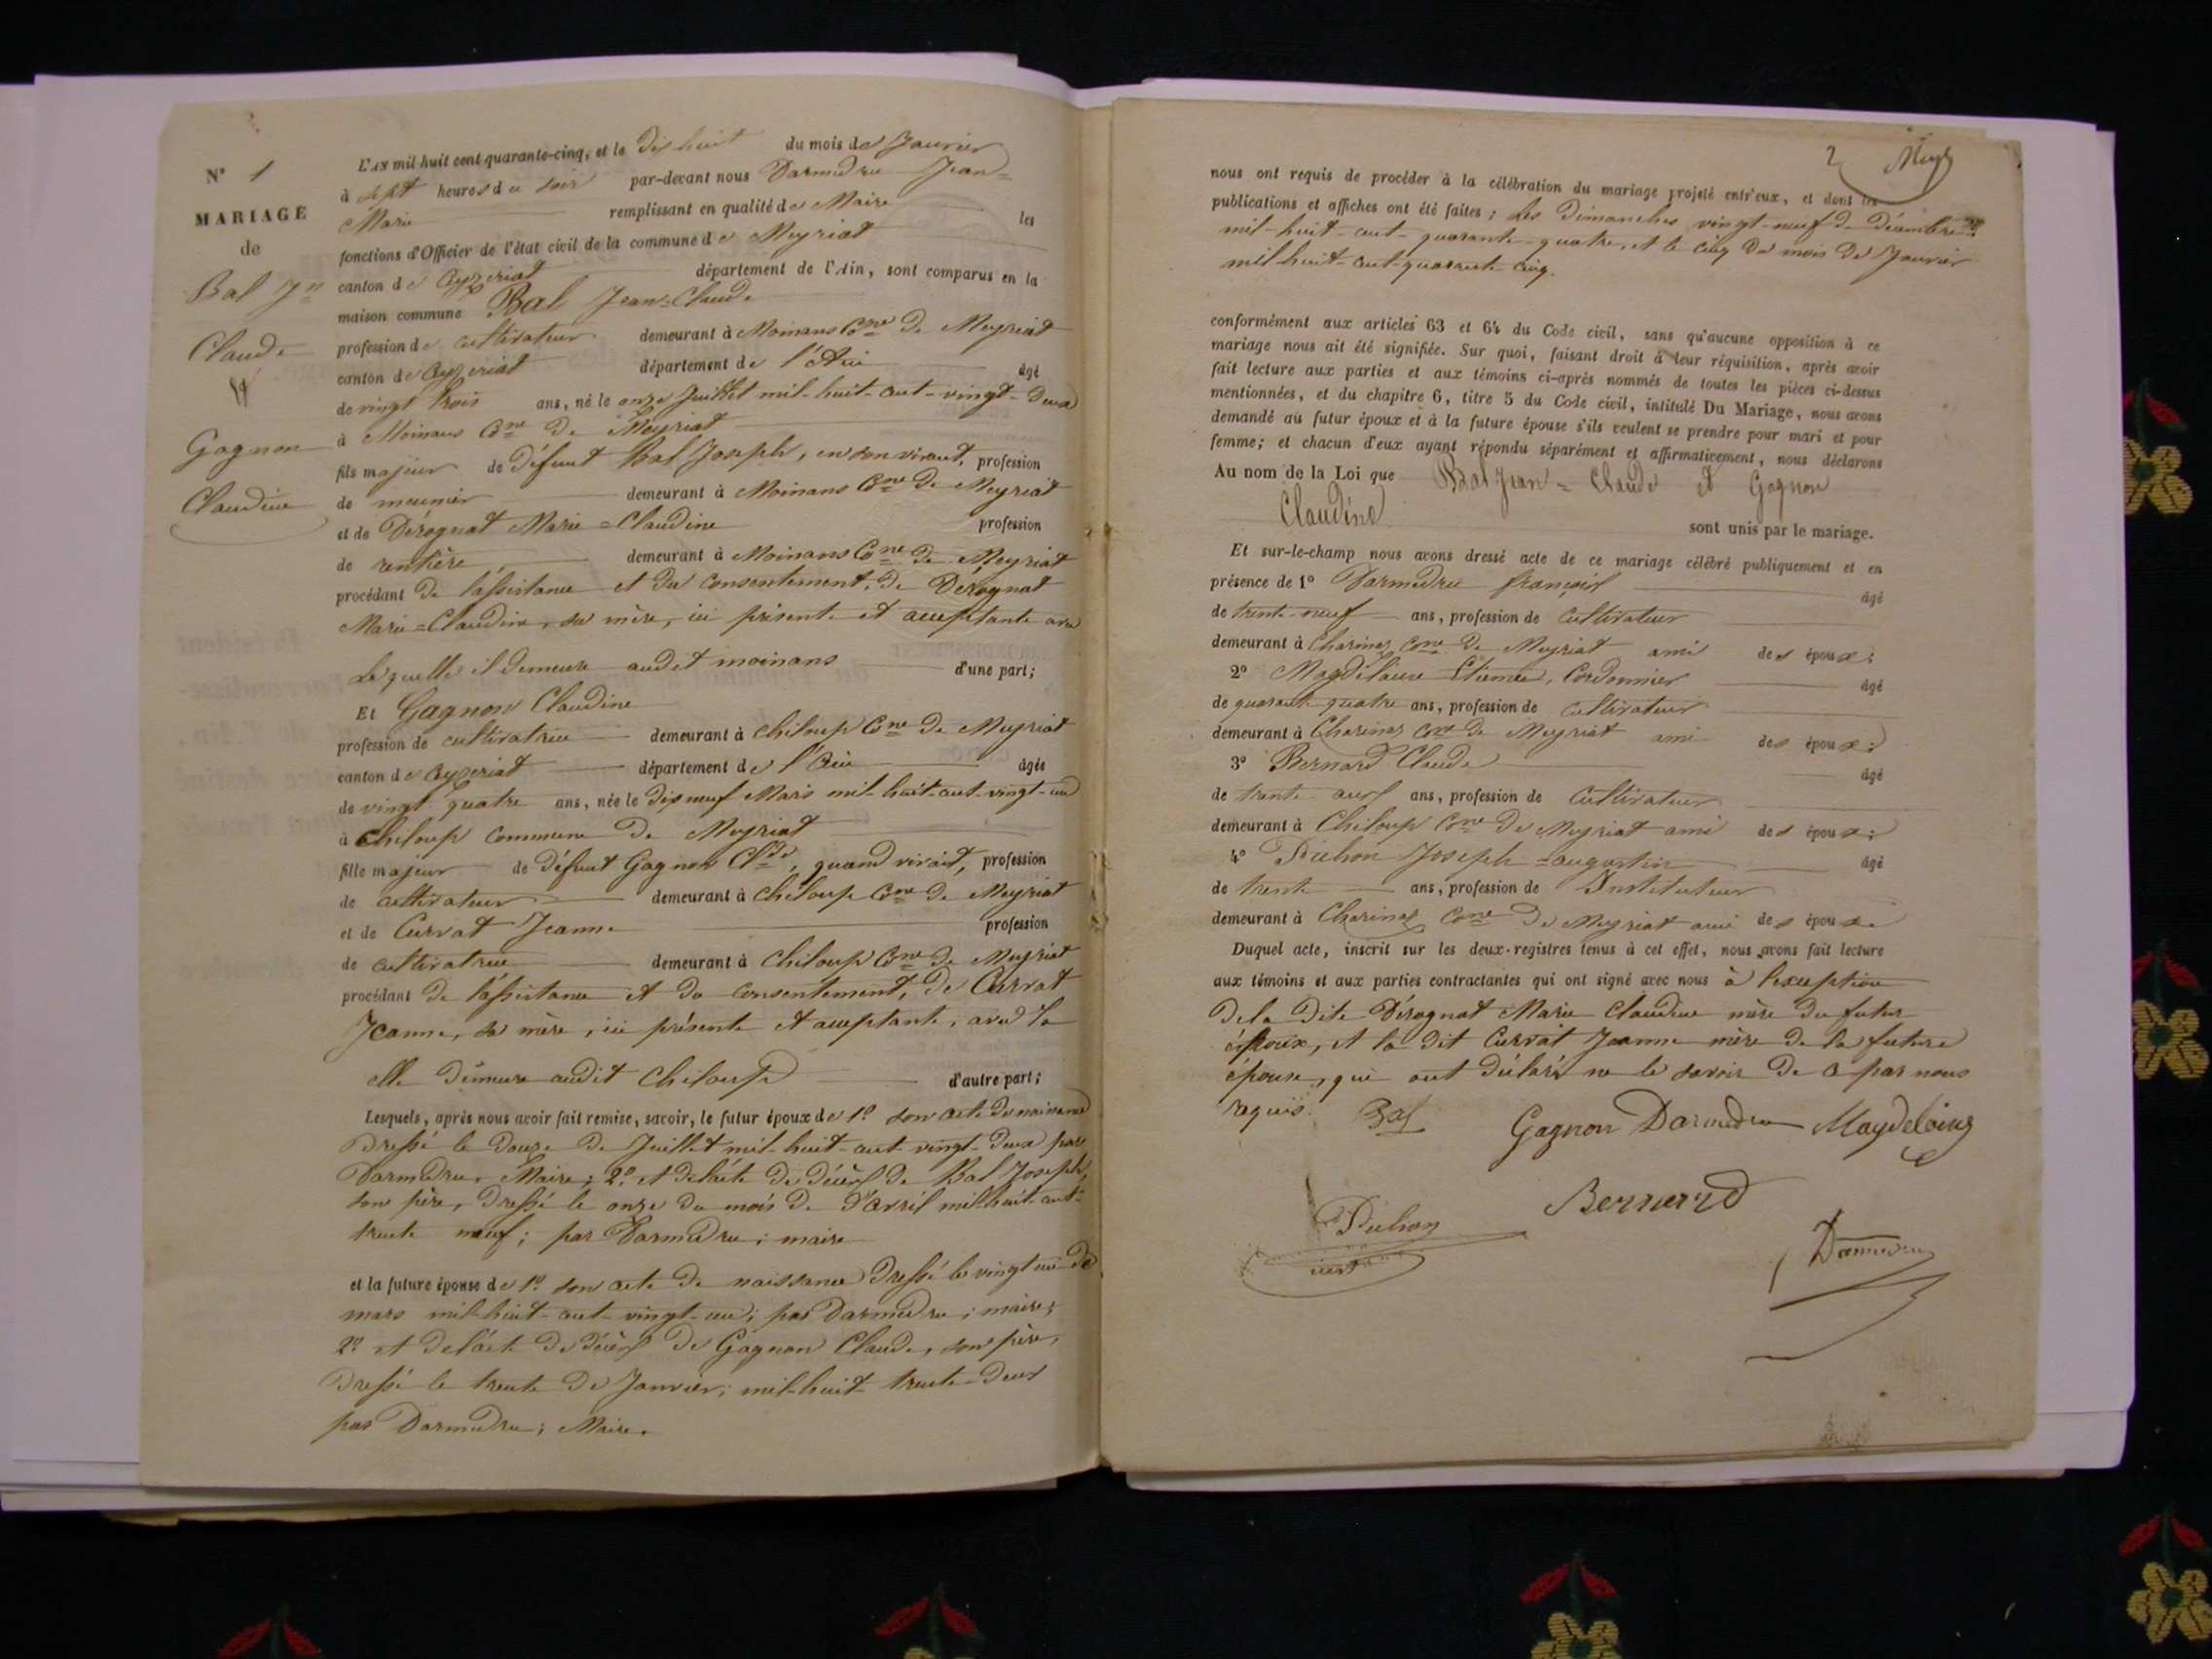 N° 1
MARIAGE
de
Bal Jn
Claude
et
Gagnon
Claudine
L'AN mil huit cent quarante-cinq, et le dix huit du mois de Janvier
à sept heures du soir par-devant nous Darmedru Jean=
Marie remplissant en qualité de Maire les
fonctions d'Officier de l'état civil de la commune de Meyriat
canton de Ceyzeriat département de l'Ain, sont comparus en la
maison commune Bal Jean-Claude
profession de cultivateur demeurant à Moinans Cne De Meyriat
canton de Ceyzeriat département de l'Ain âgé
de vingt trois ans, né le onze Juillet mil-huit-cent-vingt-deux
à Moinans Cne De Meyriat
fils majeur de défunt Bal Joseph, en son vivant, profession
de meunier demeurant à Moinans Cne De Meyriat
et de Dérognat Marie=Claudine profession
de rentière demeurant à Moinans Cne De Meyriat
procédant De l'assistance et du consentement, De Dérognat
Marie=Claudine, sa mère, ici présente et acceptante avec
Laquelle il demeure audit moinans d'une part;
Et Gagnon Claudine
profession de cultivatrice demeurant à Chiloup Cne De Meyriat
canton de Ceyzeriat département de l'Ain âgée
de vingt quatre ans, née le dix neuf Mars mil-huit-cent-vingt-un
à Chiloup commune De Meyriat
fille majeur de défunt Gagnon Clde, quand vivait, profession
de cultivateur demeurant à Chiloup Cne De Meyriat
et de Curvat Jeanne profession
de cultivatrice demeurant à Chiloup Cne De Meyriat
procédant De l'assistance et du consentement, De Curvat
Jeanne, sa mère, ici présente et acceptante, avec la
elle demeure audit Chiloup d'autre part;
Lesquels, après nous avoir fait remise, savoir, le futur époux de 1° son acte de naissance
Dressé le Douze De Juillet mil-huit-cent-vingt-deux par
Darmedru, Maire; 2° et de l'acte de décès de Bal Joseph,
son père, Dressé le onze du mois De D'avril mil-huit-cent-
trente neuf; par Darmedru; maire
et la future épouse de 1° son acte De naissance Dressé le vingt un De
mars mil-huit-cent-vingt-un; par Darmedru; maire;
2° et de l'acte De décès De Gagnon Claude, son père,
Dressé le trente De Janvier; mil-huit trente-deux
par Darmedru; Maire.
2
nous ont requis de procéder à la célébration du mariage projeté entr'eux, et dont les
publications et affiches ont été faites; les dimanches vingt-neuf De Décembre
mil-huit-cent-quarante-quatre, et le cinq Du mois De Janvier
mil huit-cent-quarante cinq.
conformément aux articles 63 et 64 du Code civil, sans qu'aucune opposition à ce
mariage nous ait été signifiée. Sur quoi, faisant droit à leur réquisition, après avoir
fait lecture aux parties et aux témoins ci-après nommés de toutes les pièces ci-dessus
mentionnées, et du chapitre 6, titre 5 du Code civil, intitulé Du Mariage, nous avons
demandé au futur époux et à la future épouse s'ils veulent se prendre pour mari et pour
femme; et chacun d'eux ayant répondu séparément et affirmativement, nous déclarons
Au nom de la Loi que Bal Jean=Claude et Gagnon
Claudine sont unis par le mariage.
Et sur-le-champ nous avons dressé acte de ce mariage célébré publiquement et en
présence de 1° Darmedru françois âgé
de trente-neuf ans, profession de Cultivateur
demeurant à Charinas Cne De Meyriat ami des époux;
2° Etienne, Cordonnier âgé
de quarante quatre ans, profession de Cultivateur
demeurant à Charinas Cne De Meyriat ami des époux;
3° Bernard Claude âgé
de trente ans, profession de Cultivateur
demeurant à Chiloup Cne De Meyriat ami des époux;
4° Joseph=augustin âgé
de trente ans, profession de Instituteur
demeurant à Charinas Cne De Meyriat ami des époux
Duquel acte, inscrit sur les deux registres tenus à cet effet, nous avons fait lecture
aux témoins et aux parties contractantes qui ont signé avec nous à l'exception
De la Dite Dérognat Marie Claudine mère du futur
époux, et la dit Curvat Jeanne mère De la future
épouse, qui ont déclaré ne le savoir De ce par nous
requis. Bal Gagnon Darmedru
Bernard
Darmedru